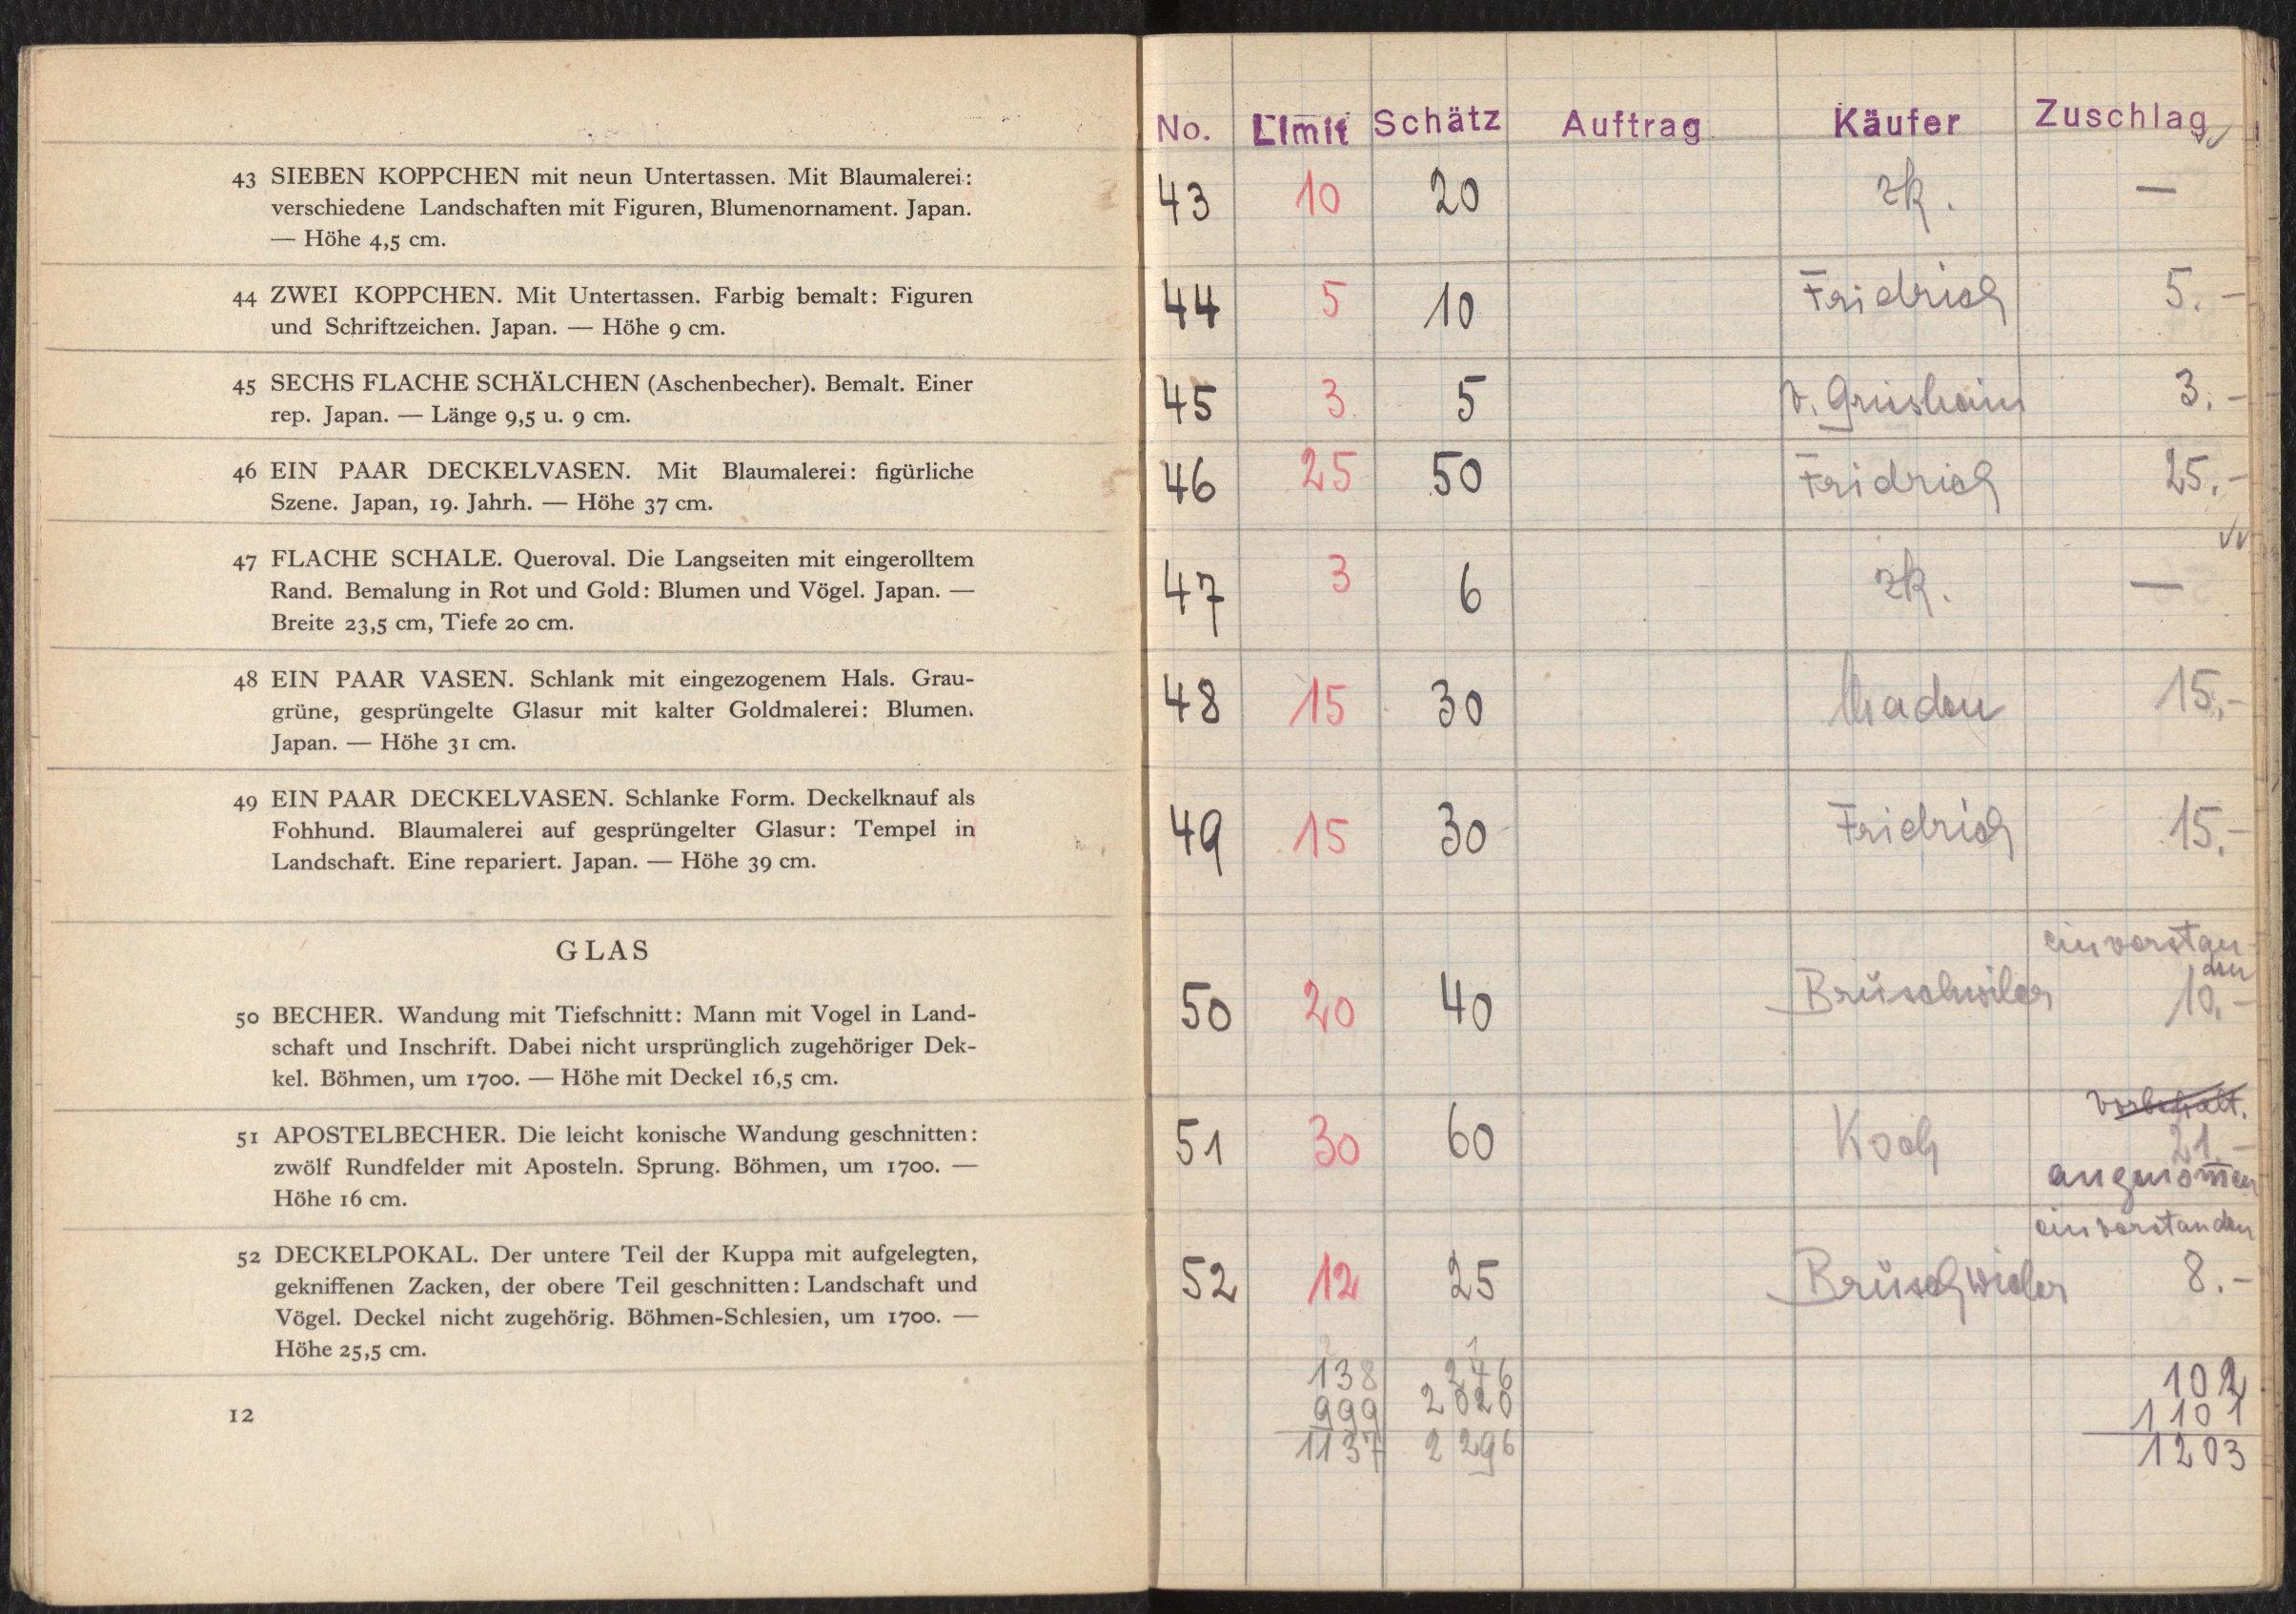 43 SIEBEN KOPPCHEN mit neun Untertassen. Mit Blaumalerei:
verschiedene Landschaften mit Figuren, Blumenornament. Japan.
— Höhe 4,5 cm.
44 ZWEI KOPPCHEN. Mit Untertassen. Farbig bemalt: Figuren
und Schriftzeichen. Japan. — Höhe 9 cm.
45 SECHS FLACHE SCHÄLCHEN (Aschenbecher). Bemalt. Einer
rep. Japan. — Länge 9,5 u. 9 cm.
46 EIN PAAR DECKELVASEN. Mit Blaumalerei: figürliche
Szene. Japan, 19. Jahrh. — Höhe 37 cm.
47 FLACHE SCHALE. Queroval. Die Langseiten mit eingerolltem
Rand. Bemalung in Rot und Gold: Blumen und Vögel. Japan. —
Breite 23,5 cm, Tiefe 20 cm.
48 EIN PAAR VASEN. Schlank mit eingezogenem Hals. Grau-
grüne, gesprüngelte Glasur mit kalter Goldmalerei: Blumen.
Japan. — Höhe 31 cm.
49 EIN PAAR DECKELVASEN. Schlanke Form. Deckelknauf als
Fohhund. Blaumalerei auf gesprüngelter Glasur: Tempel in
Landschaft. Eine repariert. Japan. — Höhe 39 cm.
GLAS
50 BECHER. Wandung mit Tiefschnitt: Mann mit Vogel in Land-
schaft und Inschrift. Dabei nicht ursprünglich zugehöriger Dek-
kel. Böhmen, um 1700. — Höhe mit Deckel 16,5 cm.
51 APOSTELBECHER. Die leicht konische Wandung geschnitten:
zwölf Rundfelder mit Aposteln. Sprung. Böhmen, um 1700. —
Höhe 16 cm.
52 DECKELPOKAL. Der untere Teil der Kuppa mit aufgelegten,
gekniffenen Zacken, der obere Teil geschnitten: Landschaft und
Vögel. Deckel nicht zugehörig. Böhmen-Schlesien, um 1700. —
Höhe 25,5 cm.
12
No. Limit Schätz Auftrag Käufer Zuschlag
43 10 20 zk. —
44 5 10 Friedrich 5.-
45 3 5 3.-
46 25 50 Fridrich 25.-
47 3 6 zk. —
48 15 30 15.-
49 15 30 Friedrich 15.-
einverstan-
den
50 20 40 Brüschwiler 10.-
Vorbehalt.
51 30 60 Koch 21.-
angenom̅en
einverstanden
52 12 25 Brüschwieler 8.-
138 246 102
999 2020 1101
1137 2296 1203